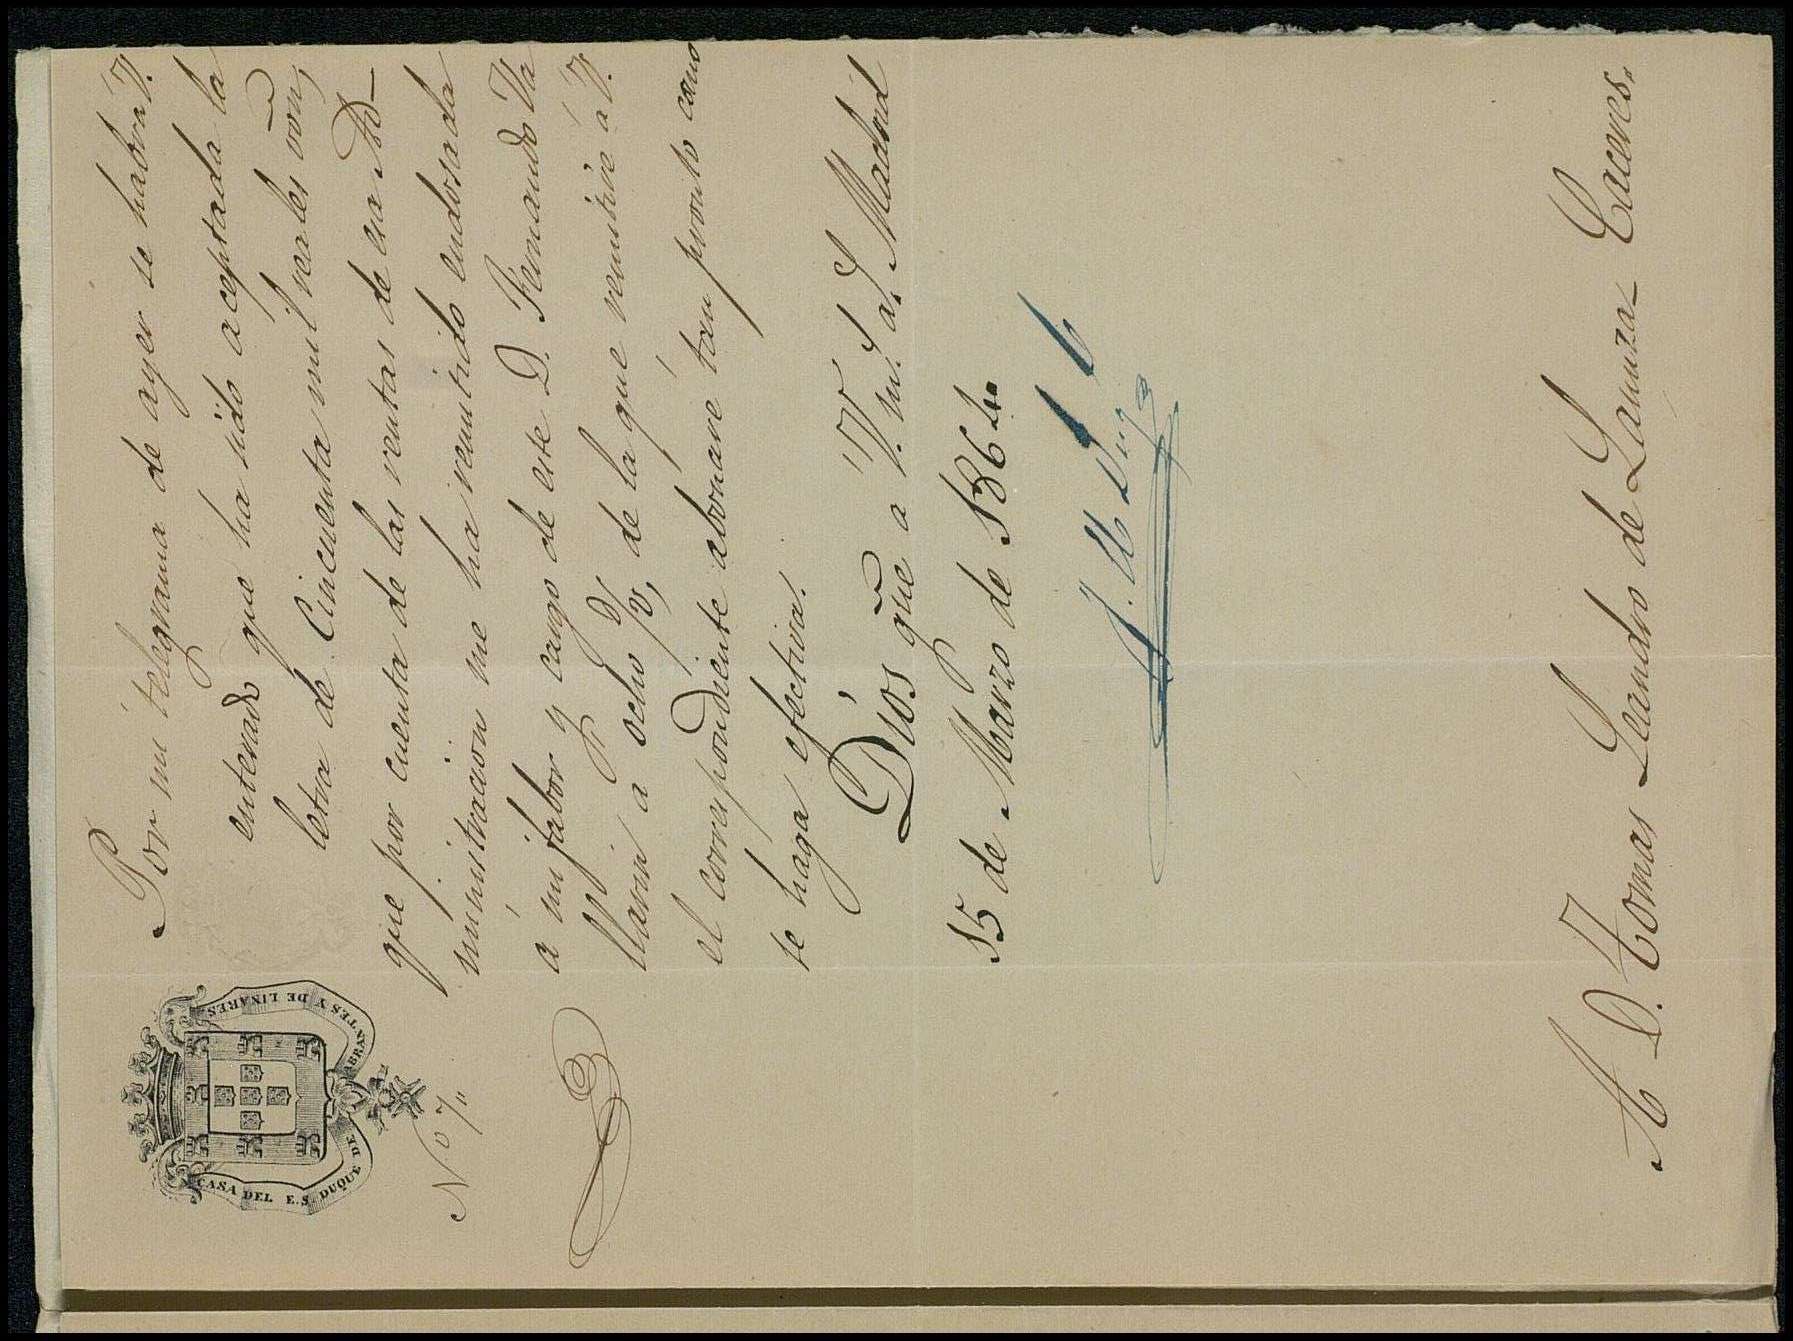 CASA DEL E.S. DUQUE DE ABRANTES Y DE LINARES
Nº 7"
Por mi telegrama de ayer se habra V.
enterado que ha sido aceptada la
letra de Cincuenta mil reales vom,
que por cuenta de las rentas de esa Ad-
ministracion me ha remitido endosada
á mi fabor y cargo de este D. Fernando Va
llarin á ocho d/v, de la que remitiré á V.
el correspondiente abonaré tam pronto como
se haga efectiva.
Dios gũe a V. m. a. Madrid
15 de Marzo de 1864.
A D. Tomas Leandro de Lanuza_ Caceres.